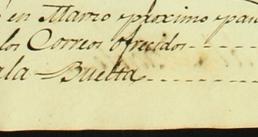 en Marzo proximo pa
los Correos ofrecidos
ala Buelta